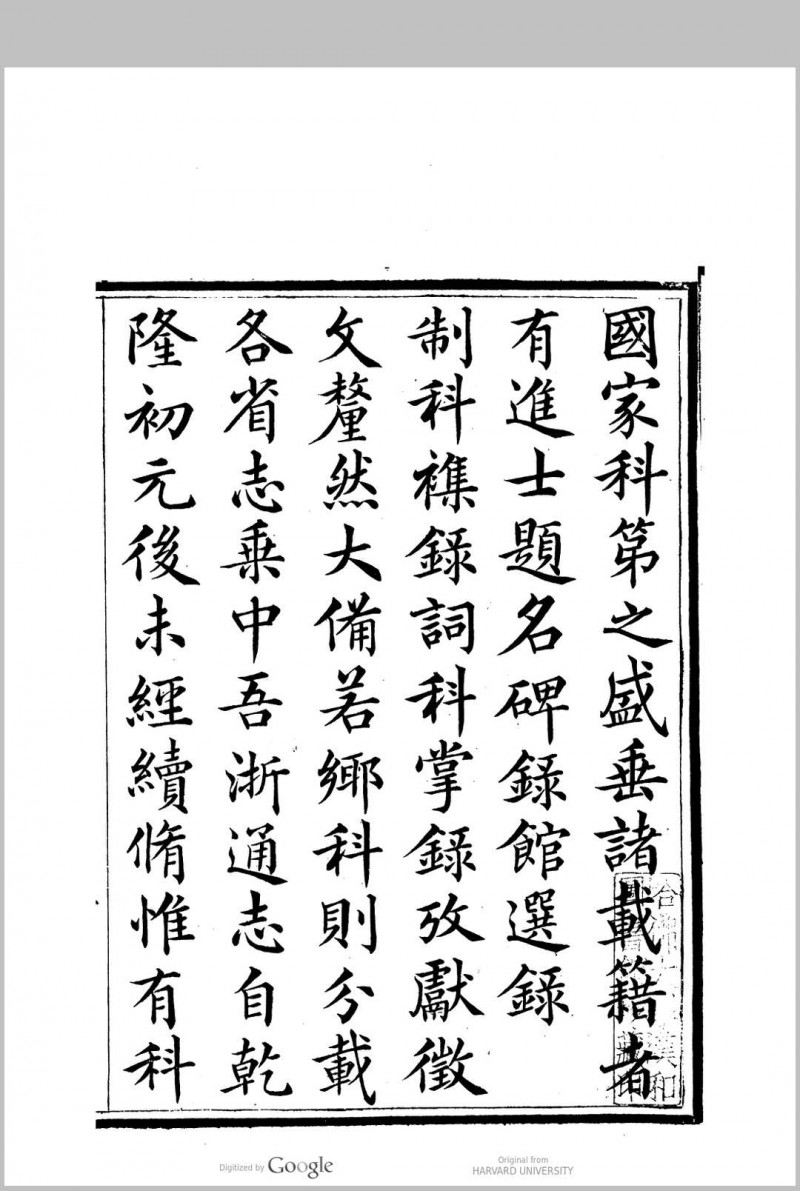 國家科第之盛垂諸載籍者
有進士題名碑錄館選錄
制科襍錄詞科掌錄攷獻徵
文釐然大備若鄉科則分載
各省志乗中吾浙通志自乾
隆初元後未經續脩惟有科
Digitized by Google
Original from
HARVARD UNIVERSITY